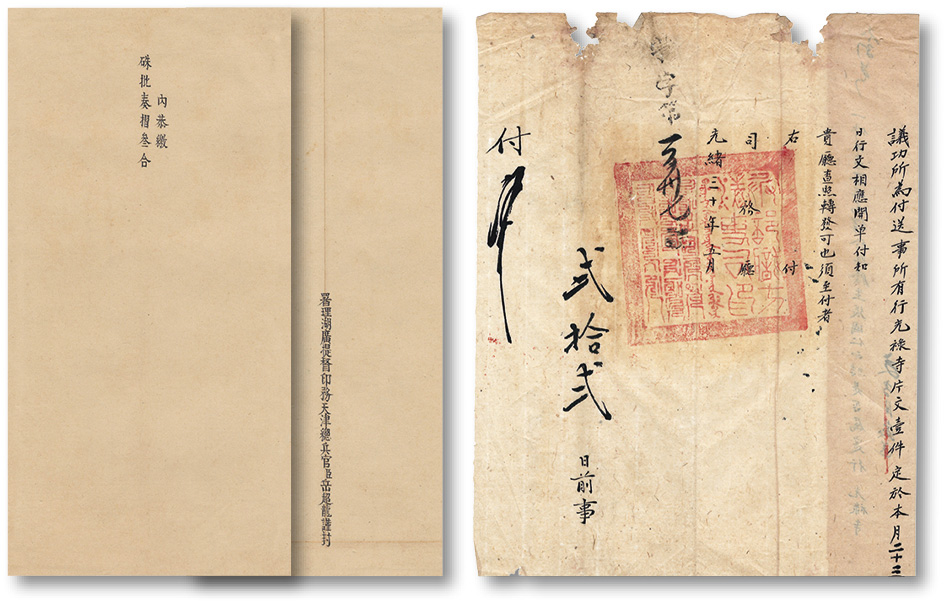 內恭繳
硃批奏摺叁合
署理湖廣提督印務天津總兵官臣岳超龍謹封
議功所為付送事所有行光祿寺片文壹件定於本月二十三
日行文相應開单付知
貴廳查照轉發可也須至付者
右付
司務廳
光緒三十年五月
字第一百卅七號
弍拾弍
日前事
付